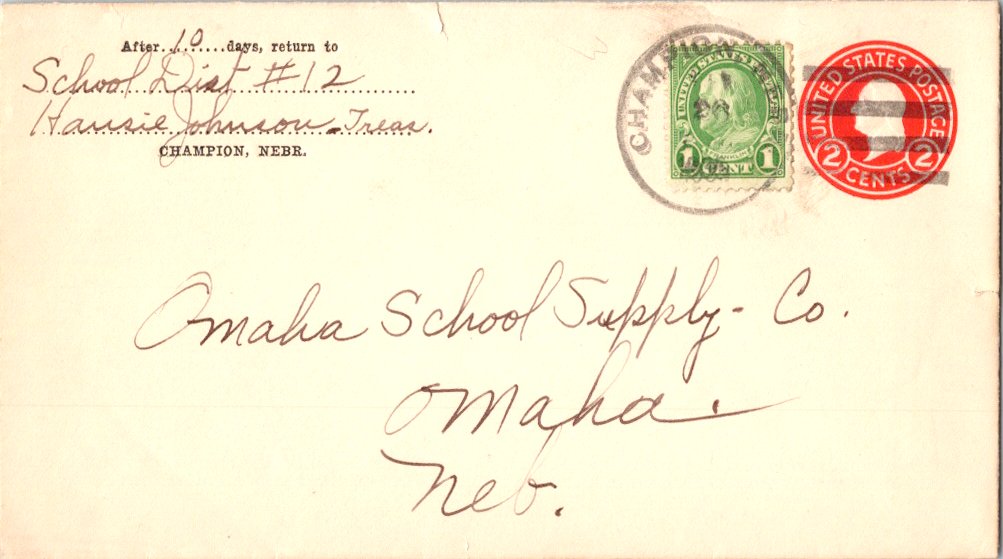 After 10 days, return to
School Dist #12
Hansie Johnson Treas.
CHAMPION, NEBR.
CHAMPION
UNITED STATES POSTAGE
FRANKLIN
1 CENT 1
UNITED STATES POSTAGE
2 CENTS 2
Omaha School Supply - Co.
Omaha.
Neb.